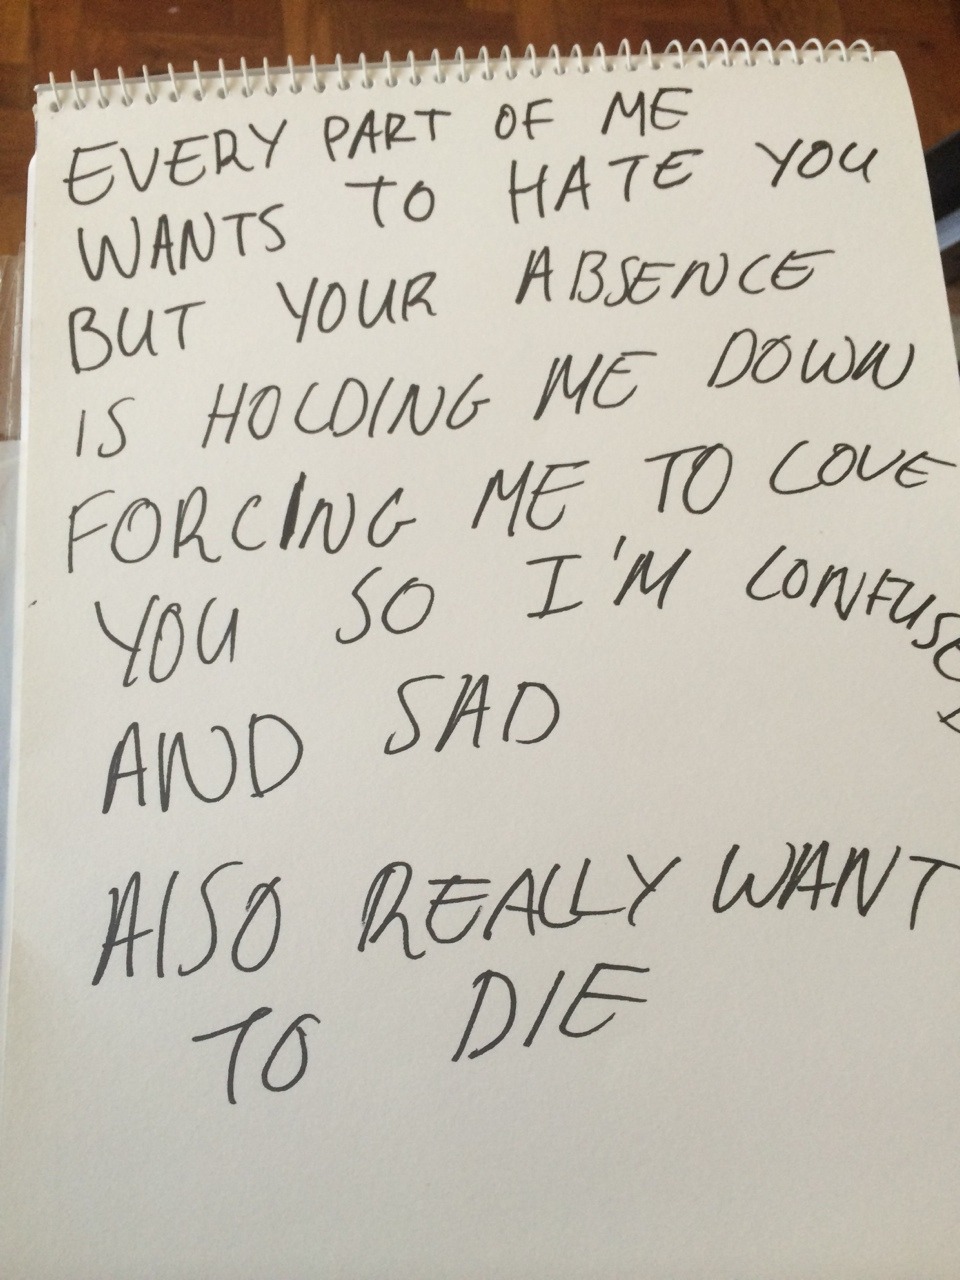 EVERY PART OF ME
WANTS TO HATE YOU
BUT YOUR ABSENCE
IS HOLDING ME DOWN
FORCING ME TO LOVE
YOU SO I'M CONFUSED
AND SAD
ALSO REALLY WANT
TO DIE